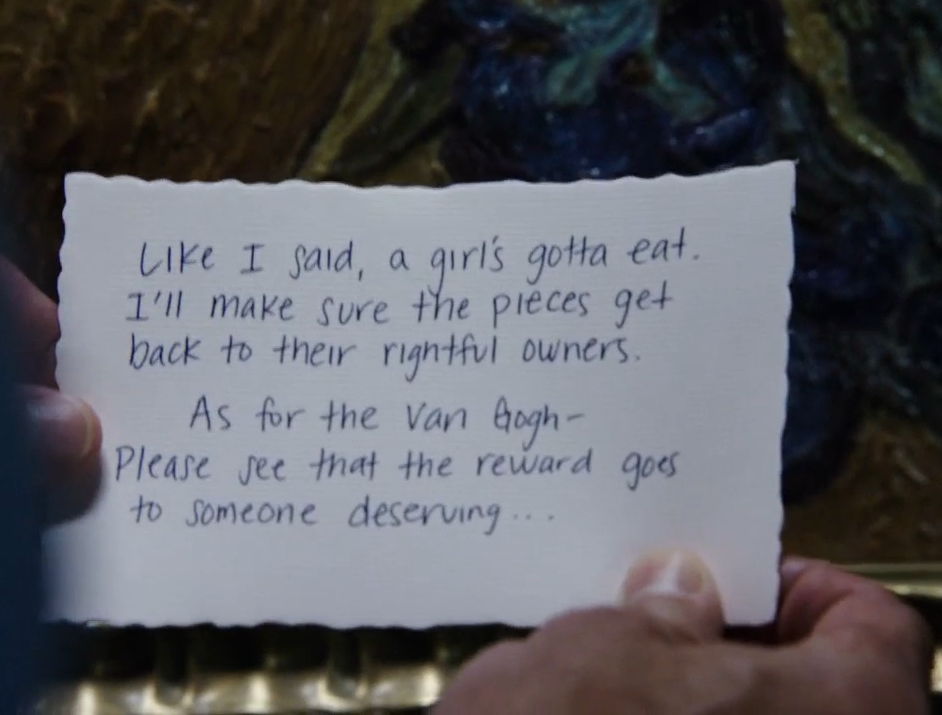 Like I said, a girl's gotta eat.
I'll make sure the pieces get
back to their rightful owners.
As for the Van Gogh-
Please see that the reward goes
to someone deserving...